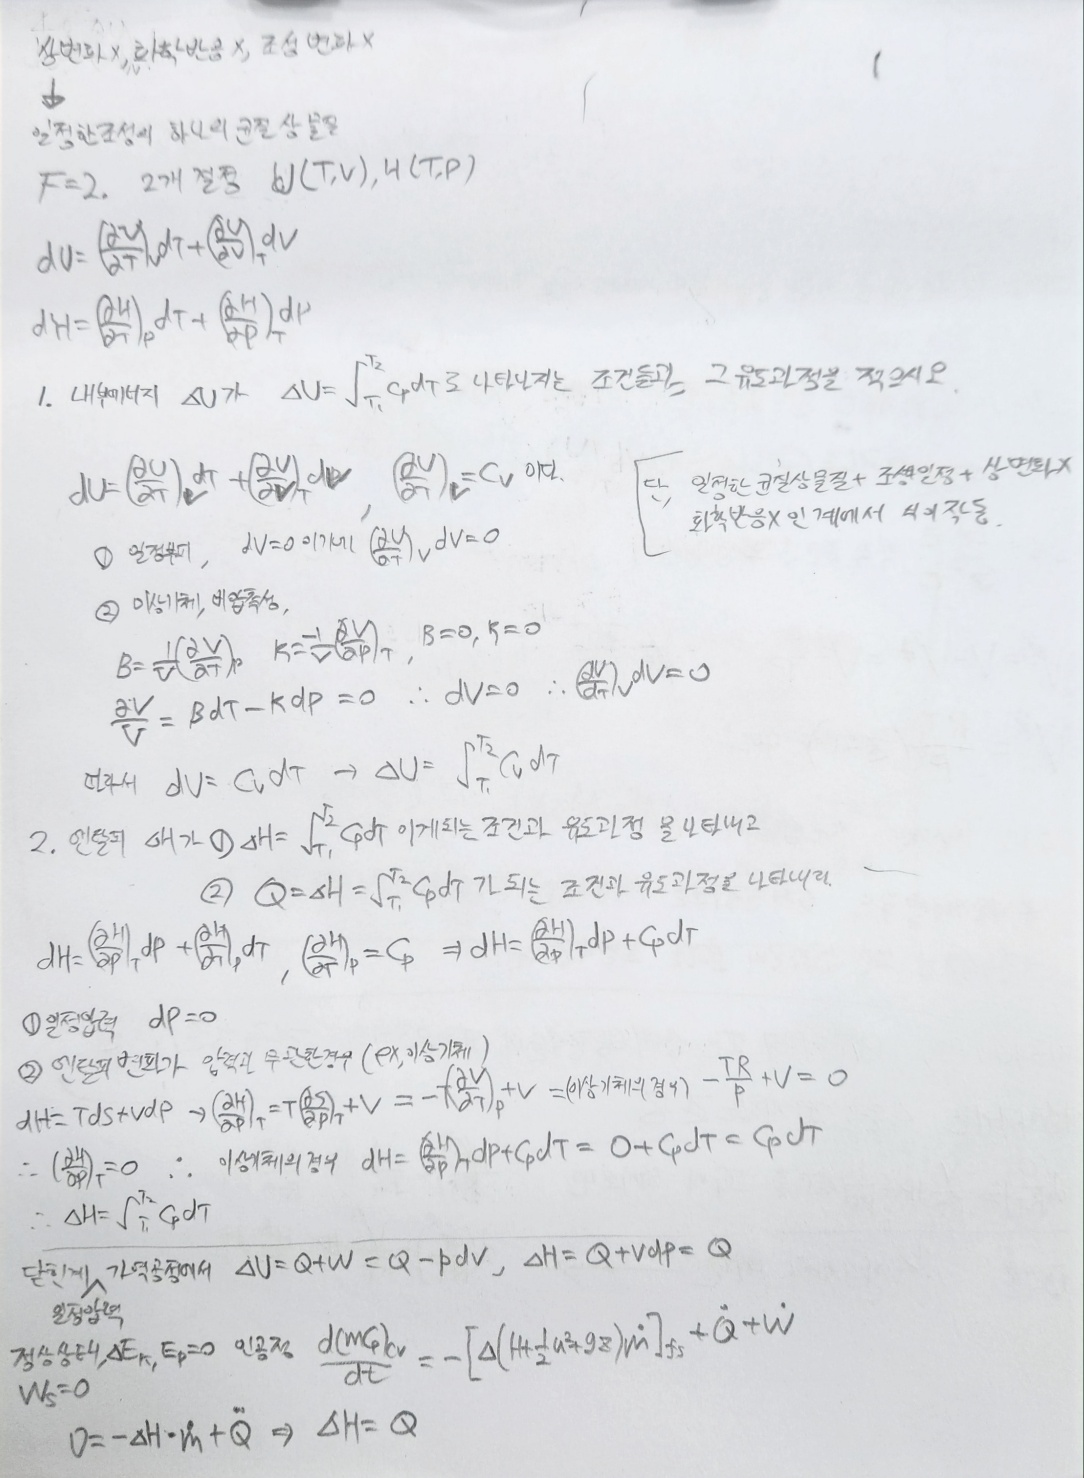 상변화 x, 화학반응 x, 조성 변화 x
↓
일정한 조성의 하나의 균질상 물질
F=2. 2개 결정 U(T,V), H(T,P)
dU=(∂U/∂T)_V dT+(∂U/∂V)_T dV
dH=(∂H/∂T)_P dT+(∂H/∂P)_T dP
1. 내부에너지 ΔU가 ΔU=∫_T₁^T₂ CvdT로 나타나지는 조건들과, 그 유도과정을 적으시오.
dU=(∂U/∂T)_V dT+(∂U/∂V)_T dV, (∂U/∂T)_V=Cv 이다.
단, 일정한 균질상물질+조성일정+상변화X
화학반응X인 계에서 식이 작동.
① 일정부피, dV=0이기에 (∂U/∂T)_V dV=0
② 이상기체, 비압축성,
B=1/V(∂V/∂T)_P K=-1/V(∂V/∂P)_T, B=0, K=0
∂V/V=BdT-KdP=0 ∴ dV=0 ∴ (∂U/∂T)_V dV=0
따라서 dU=CvdT → ΔU=∫_T₁^T₂ CvdT
2. 엔탈피 ΔH가 ① ΔH=∫_T₁^T₂ CpdT 이게되는 조건과 유도과정을 나타내고
② Q=ΔH=∫_T₁^T₂ CpdT가 되는 조건과 유도과정을 나타내라.
dH=(∂H/∂P)_T dP+(∂H/∂T)_P dT, (∂H/∂T)_P=Cp ⇒ dH=(∂H/∂P)_T dP+CpdT
① 일정압력 dP=0
② 엔탈피 변화가 압력과 무관한경우(ex, 이상기체)
dH=Tds+Vdp → (∂H/∂P)_T=T(∂S/∂P)_T+V = -T(∂V/∂T)_P+V =(이상기체의 경우) -TR/P+V=0
∴ (∂H/∂P)_T=0 ∴ 이상기체의 경우 dH=(∂H/∂P)_T dP+CpdT=0+CpdT=CpdT
∴ ΔH=∫_T₁^T₂ CpdT
닫힌계 가역공정에서 ΔU=Q+W=Q-pdV, ΔH=Q+Vdp=Q
일정압력
정상상태, ΔEk, Ep=0 인공정 d(mCp)cv/dt=-[Δ(H+½u²+gz)ṁ]fs+Q̇+Ẇ
Ws=0
0=-ΔH·ṁ+Q̇ ⇒ ΔH=Q